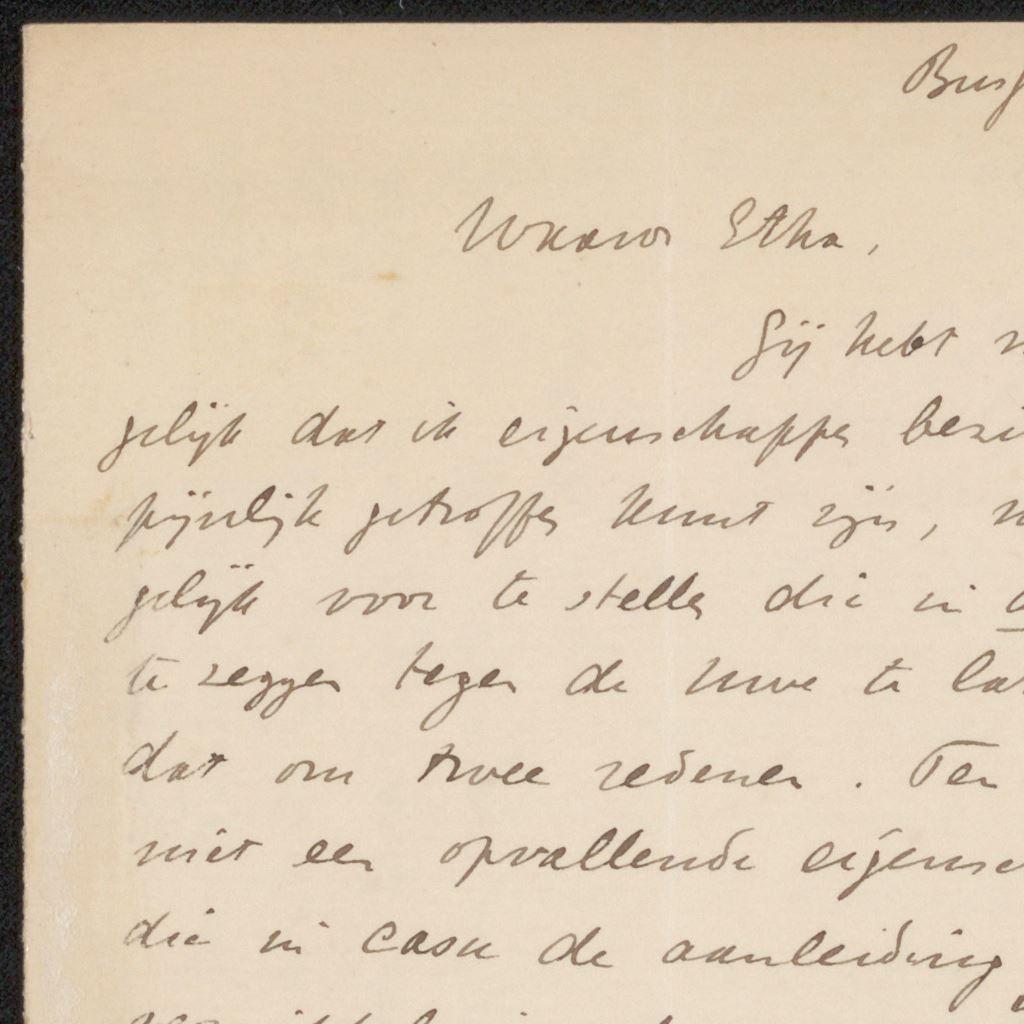 Waarde Etha,
Gij hebt
gelijk dat ik eigenschappen
pijnlijk getroffen kunt zijn,
gelijk voor te stellen die in
te zeggen tegen de uwe te
dat om twee redenen. Ten
niet een opvallende
die in casu de aanleiding